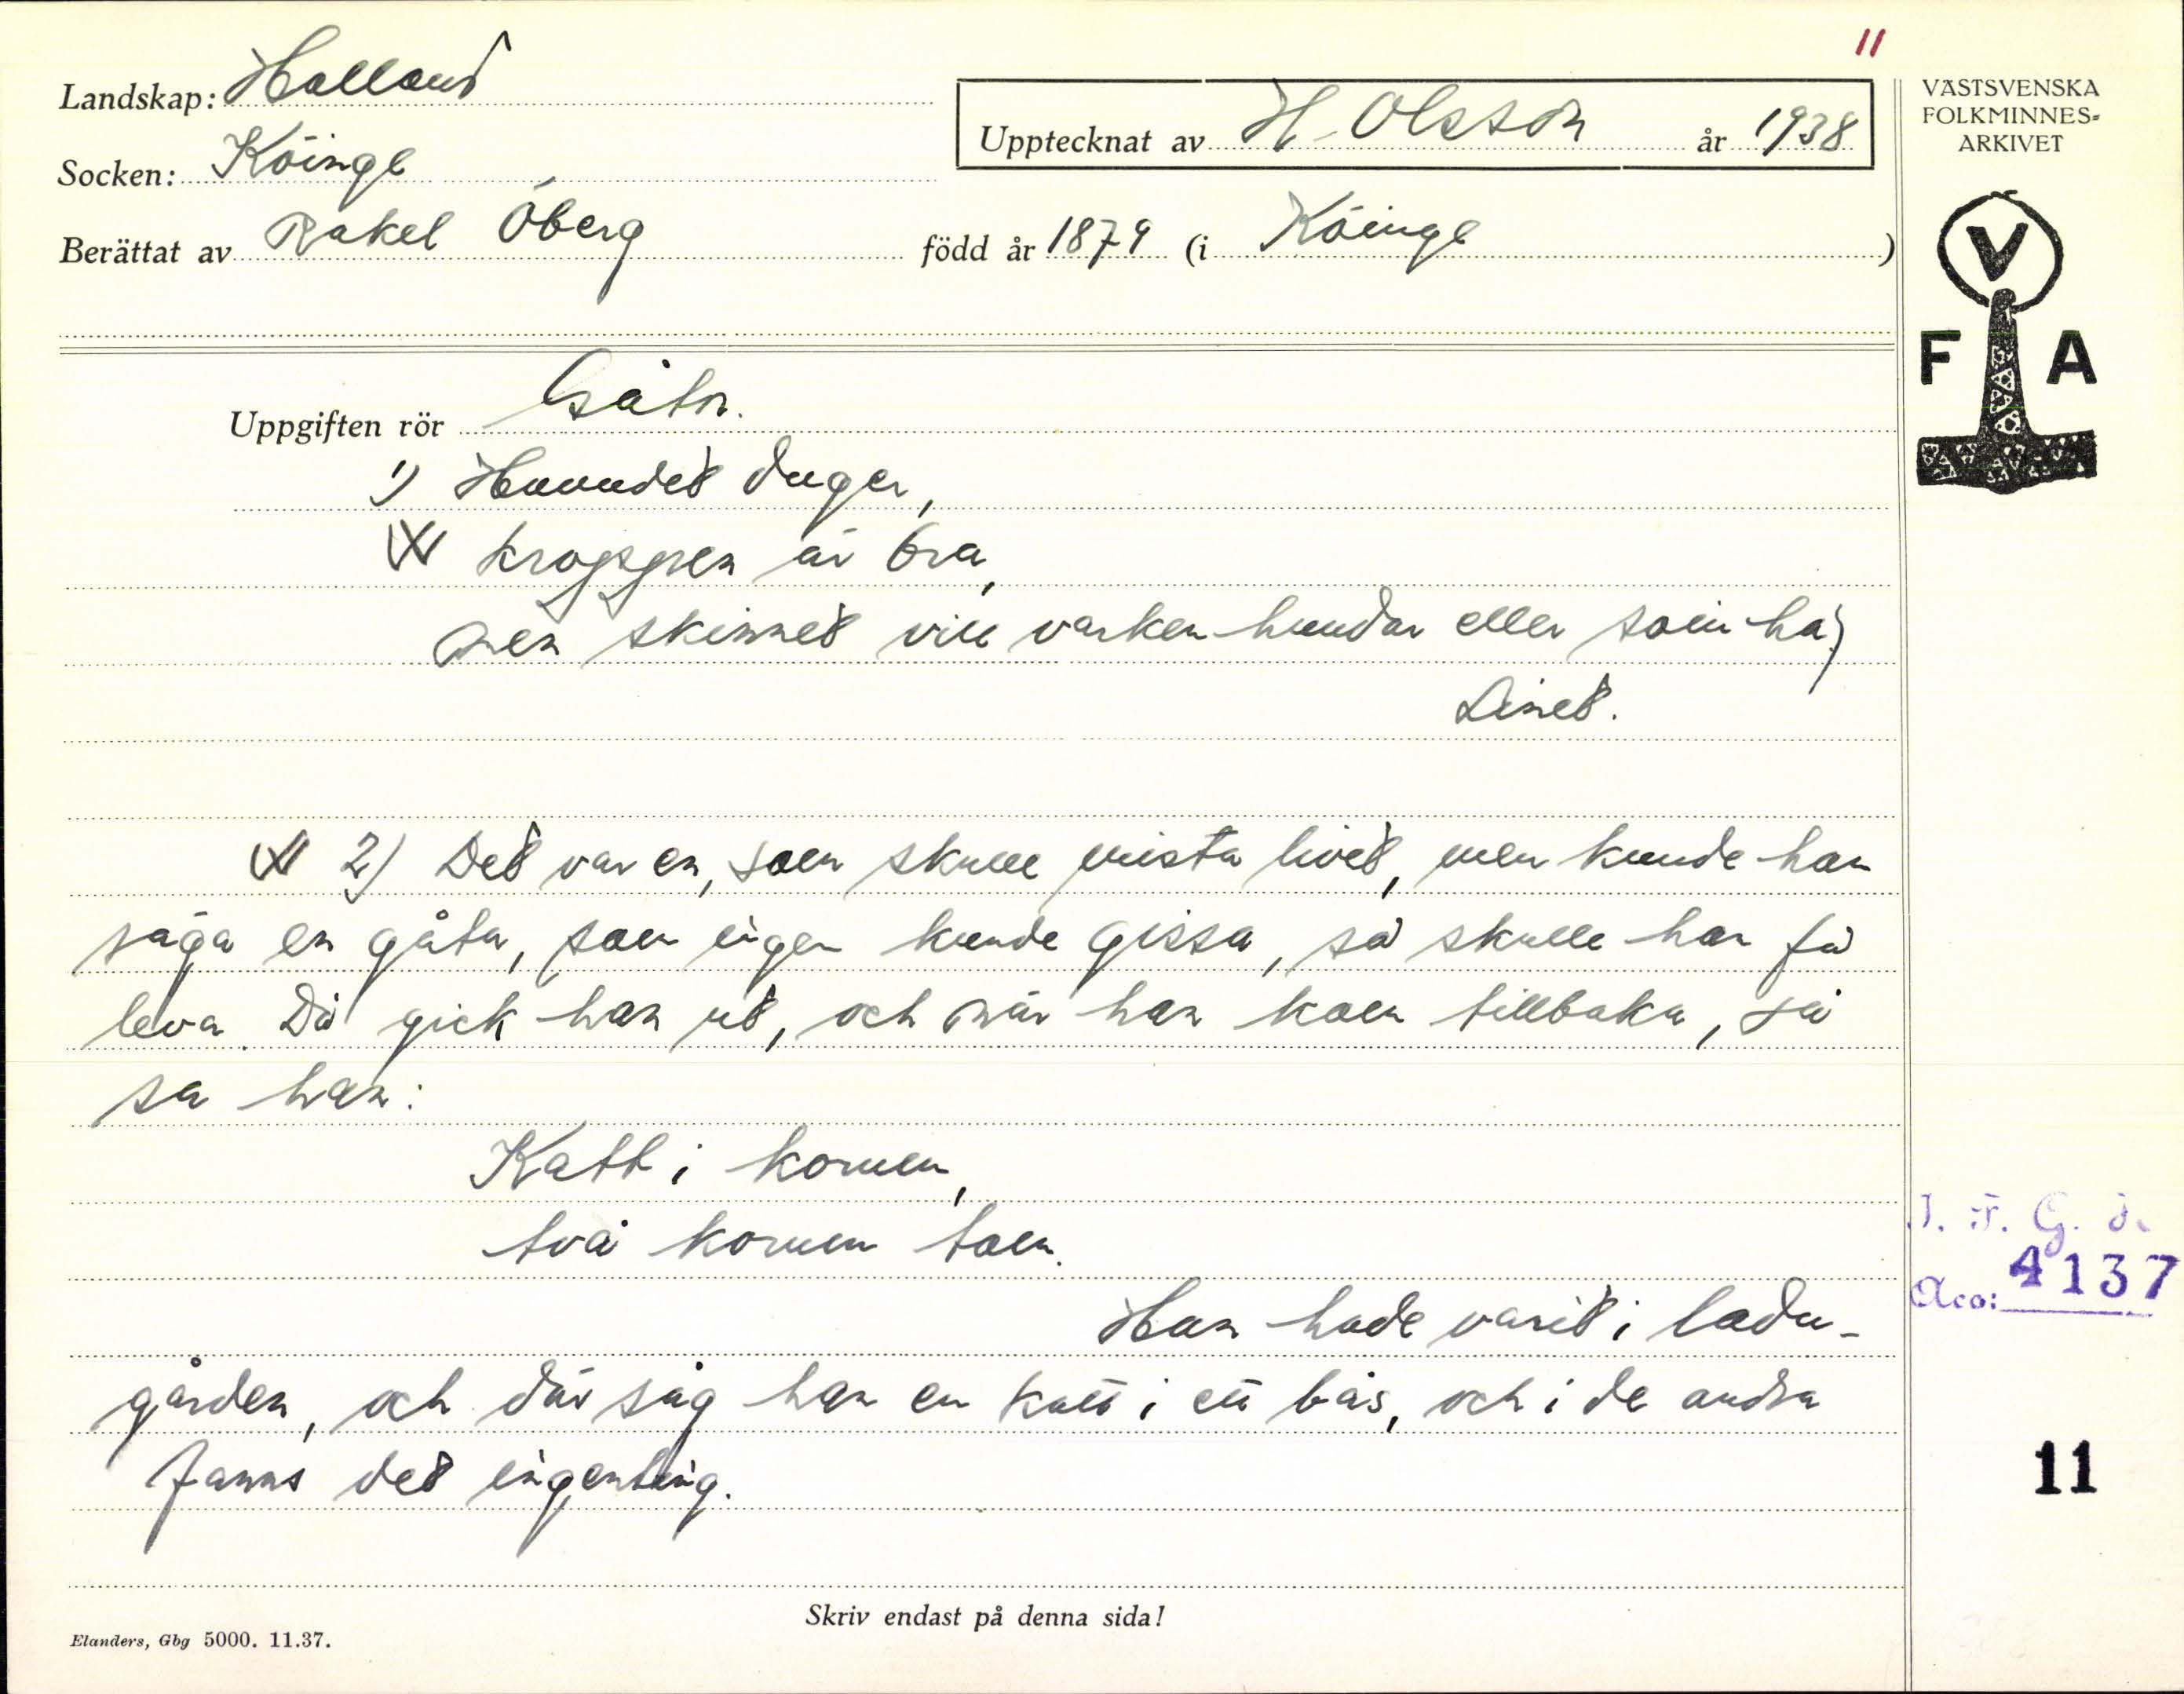 11
Landskap: Halland
Upptecknat av H. Olsson år 1938
Socken: Köinge
Berättat av Rakel Öberg född år 1879 (i Köinge)
VÄSTSVENSKA
FOLKMINNES-
ARKIVET
V
F A
Uppgiften rör Gåtor.
1) Huvudet duger,
kroppen är bra,
men skinnet vill varken hundar eller svin ha,
Linet.
2) Det var en, som skulle mista livet, men kunde han
säga en gåta, som ingen kunde gissa, så skulle han få
leva. Då gick han ut, och när han kom tillbaka, så
sa han:
Katt i kommen,
två kommen tom.
Han hade varit i ladu-
gården, och där såg han en katt i ett bås, och i de andra
fanns det ingenting.
4137
Acc:
11
Skriv endast på denna sida!
Elanders, Gbg 5000. 11.37.